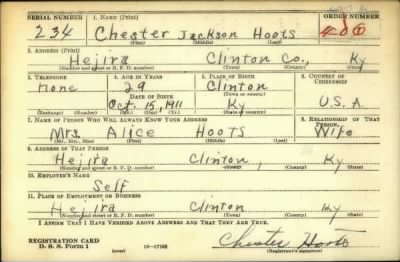 SERIAL NUMBER 1. NAME (Print) ORDER NUMBER
234 Chester Jackson Hoots
(First) (Middle) (Last)
2. ADDRESS (Print)
Hejira Clinton Co., Ky
(Number and street or R. F. D. number) (Town) (County) (State)
3. TELEPHONE 4. AGE IN YEARS 5. PLACE OF BIRTH 6. COUNTRY OF CITIZENSHIP
none 29 Clinton
DATE OF BIRTH (Town or county)
Oct. 15, 1911 Ky U.S.A.
(Exchange) (Number) (Mo.) (Day) (Yr.) (State or country)
7. NAME OF PERSON WHO WILL ALWAYS KNOW YOUR ADDRESS 8. RELATIONSHIP OF THAT PERSON
Mrs. Alice HOOTS Wife
(Mr., Mrs., Miss) (First) (Middle) (Last)
9. ADDRESS OF THAT PERSON
Hejira Clinton, Ky
(Number and street or R. F. D. number) (Town) (County) (State)
10. EMPLOYER'S NAME
Self
11. PLACE OF EMPLOYMENT OR BUSINESS
Hejira Clinton Ky
(Number and street or R. F. D. number) (Town) (County) (State)
I AFFIRM THAT I HAVE VERIFIED ABOVE ANSWERS AND THAT THEY ARE TRUE.
REGISTRATION CARD
D. S. S. Form 1 (over) 16-17105 Chester Hoots
(Registrant's signature)